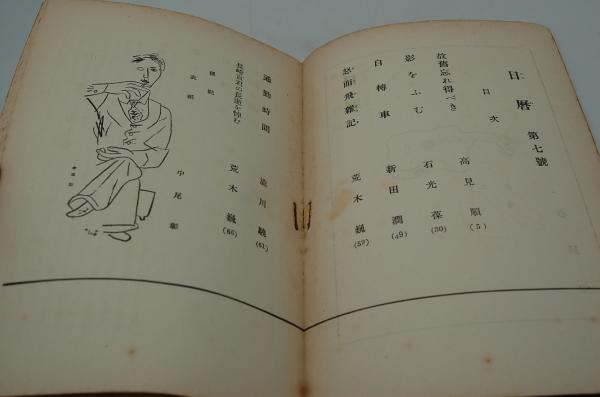 日暦 第七號
目次
故舊忘れ得べき 高見順 (5)
影をふむ 石光葆 (30)
自轉車 新田潤 (49)
怒面飛雜記 荒木巍 (52)
通勤時間 澁川驍 (61)
長崎君の長逝を悼む 荒木巍 (66)
表紙 中尾彰